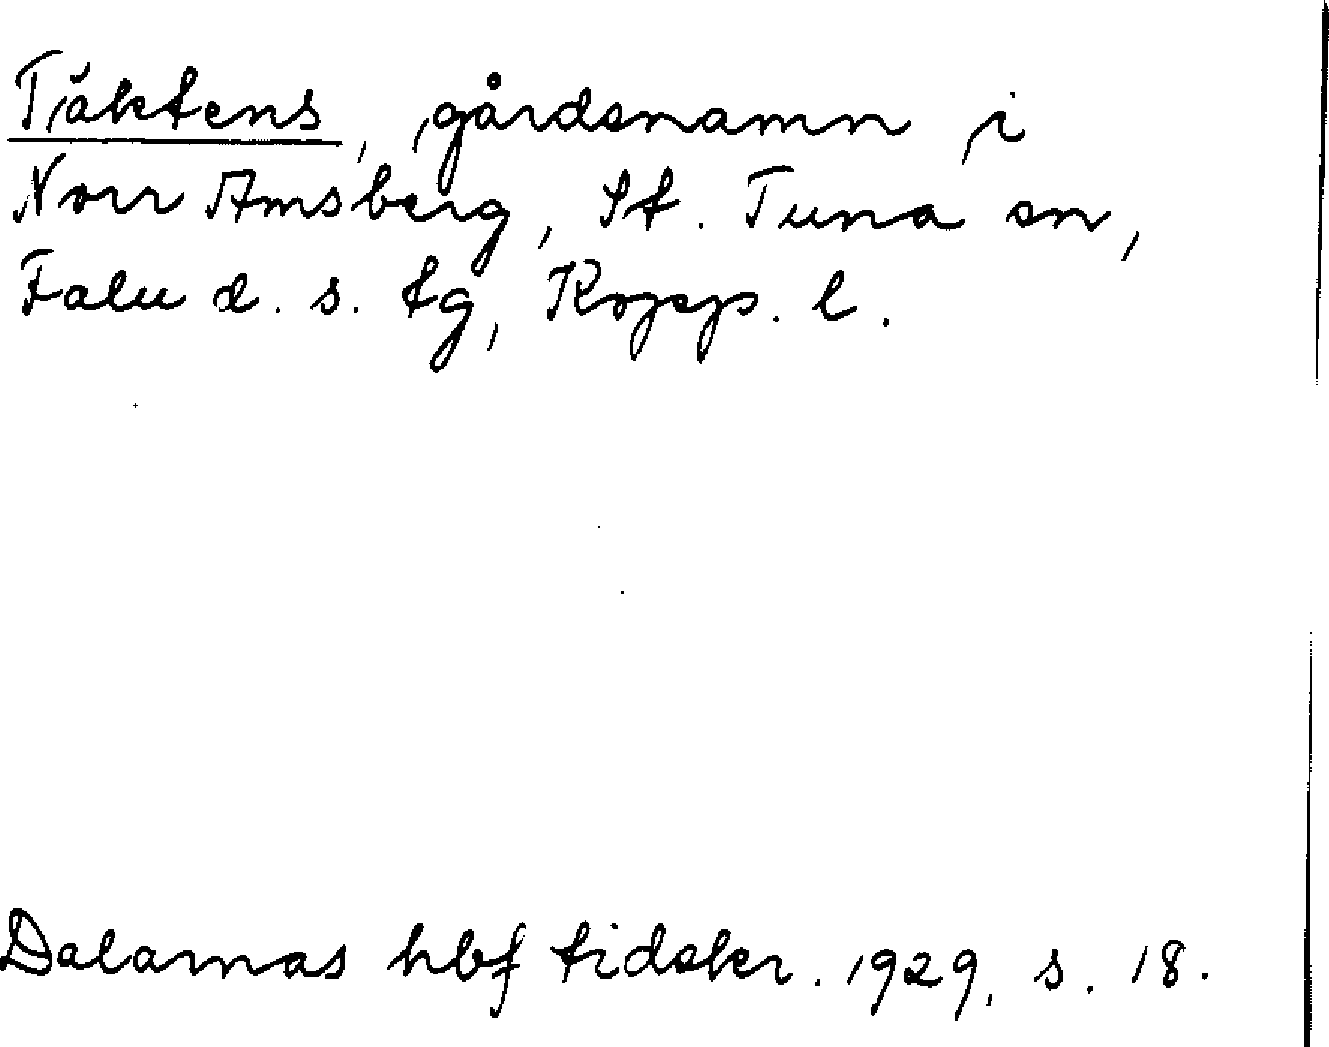 Täktens, gårdsnamn i
Norr Amsberg, St. Tuna sn,
Falu d. s. tg, Kopp. l.
Dalarnas hbf tidskr. 1929, s. 18.